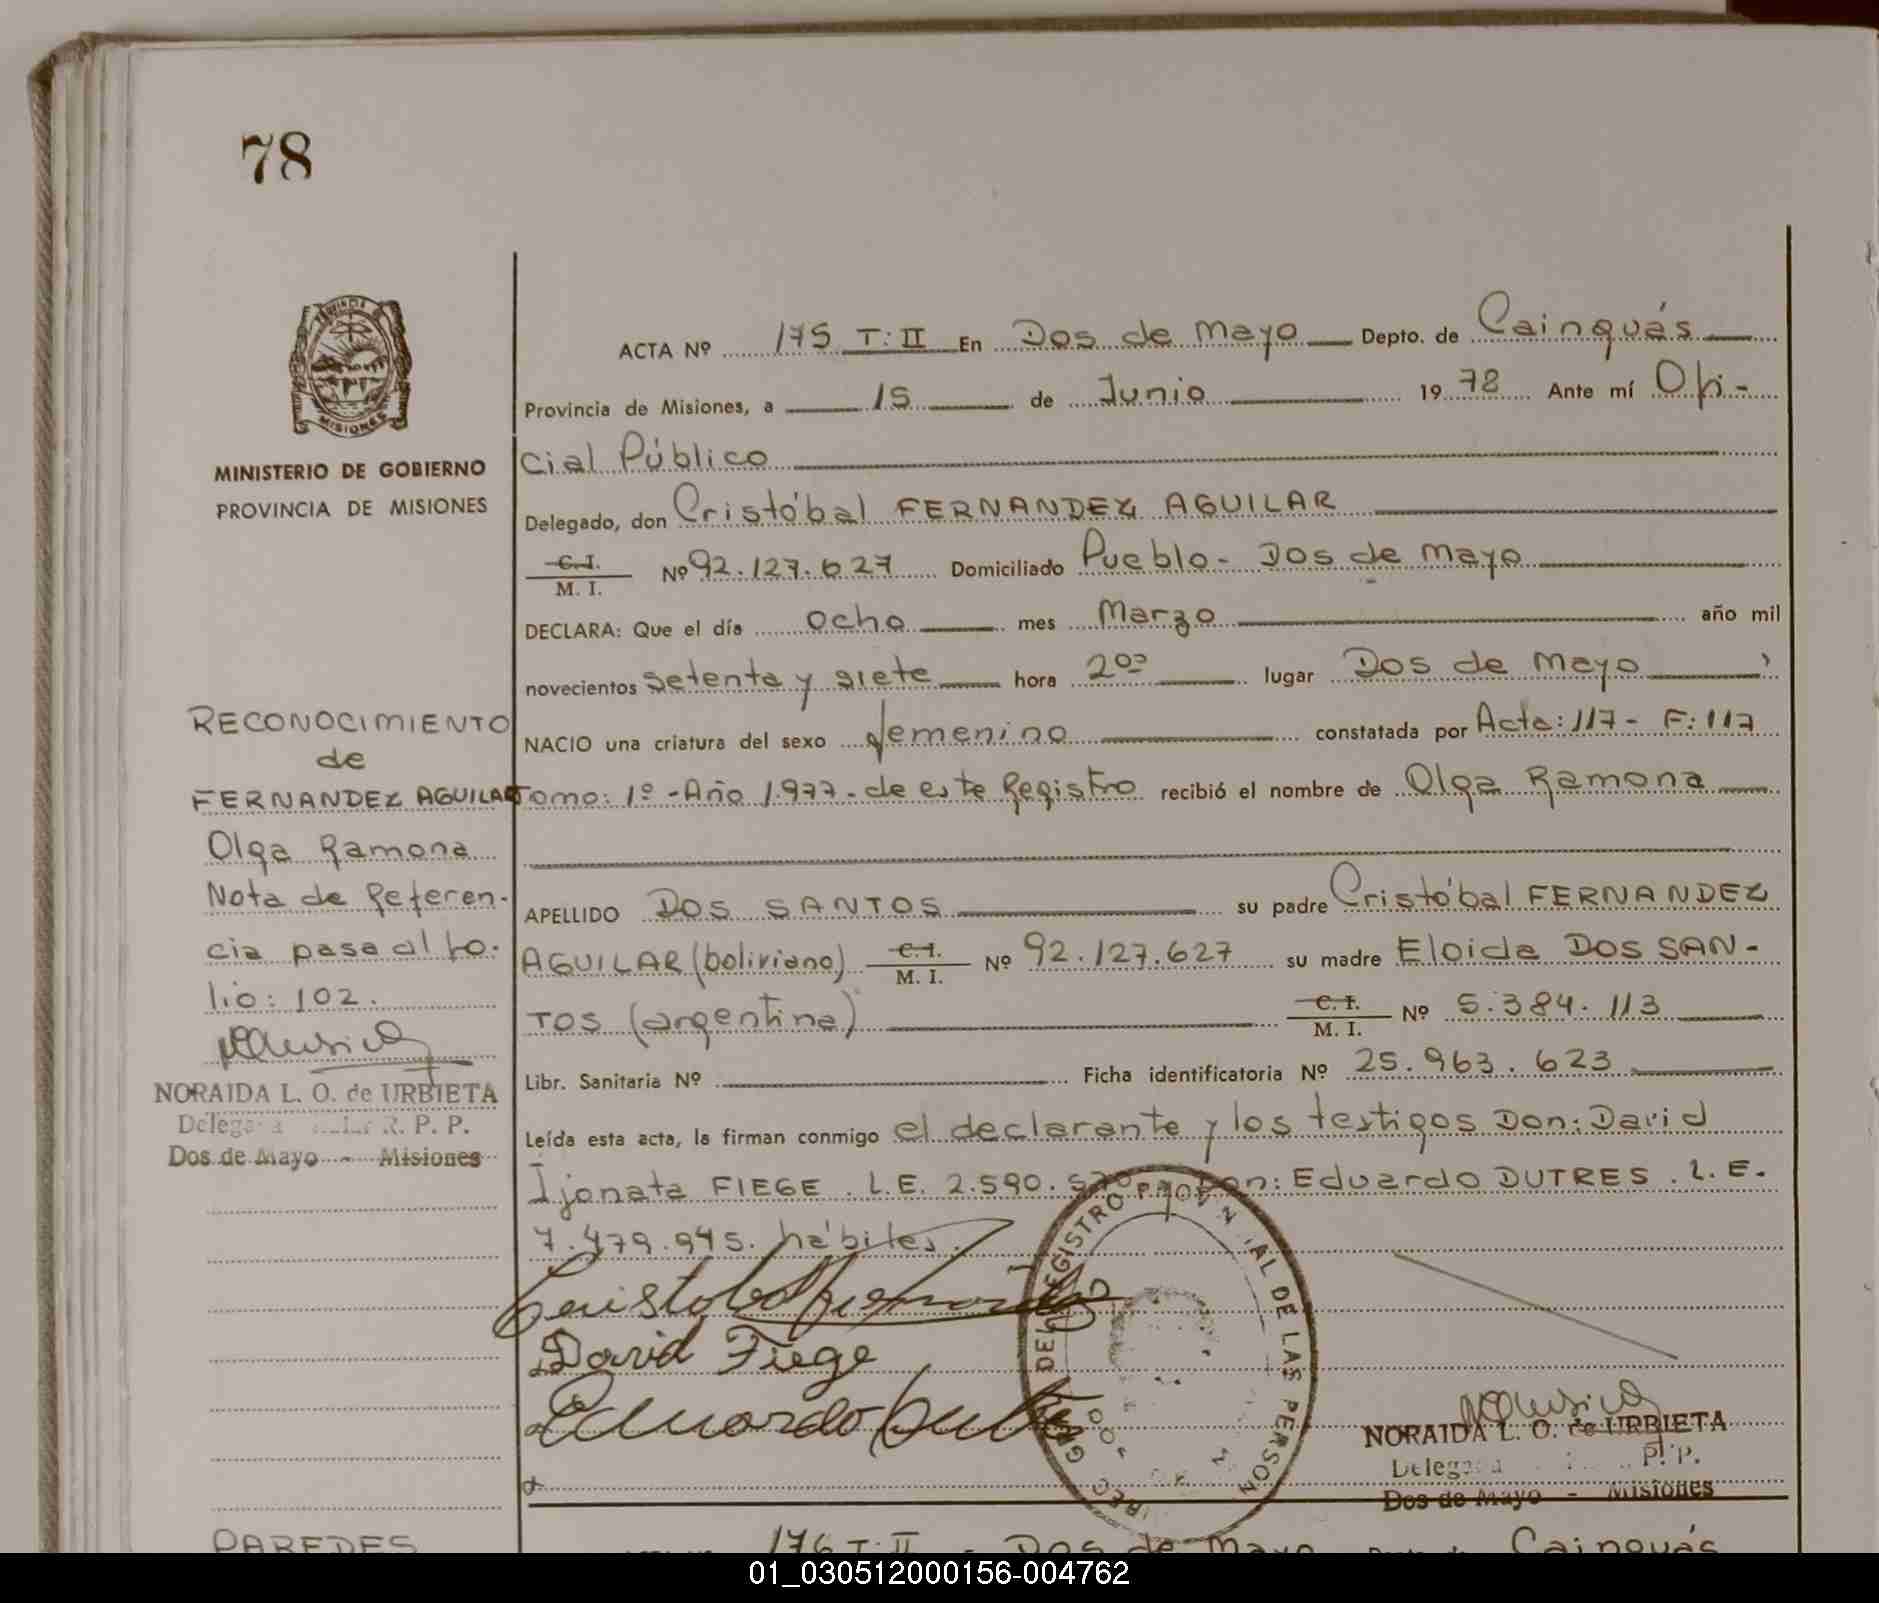 78
PROVINCIA
MISIONES
MINISTERIO DE GOBIERNO
PROVINCIA DE MISIONES
RECONOCIMIENTO
de
FERNANDEZ AGUILAR
Olga Ramona
Nota de Referen-
cia pasa al fo-
lio: 102.
NORAIDA L. O. de URBIETA
Delegada R. P. P.
Dos de Mayo - Misiones
ACTA Nº 175 T: II En Dos de Mayo Depto. de Cainguás
Provincia de Misiones, a 15 de Junio 1978 Ante mí Ofi-
cial Público
Delegado, don Cristóbal FERNANDEZ AGUILAR
C.I. M. I. Nº 92.127.627 Domiciliado Pueblo - Dos de Mayo
DECLARA: Que el día ocho mes Marzo año mil
novecientos setenta y siete hora 2ºº lugar Dos de Mayo
NACIO una criatura del sexo femenino constatada por Acta: 117 - F: 117
Tomo: 1º - Año 1.977 - de este Registro recibió el nombre de Olga Ramona
APELLIDO DOS SANTOS su padre Cristóbal FERNANDEZ
AGUILAR (boliviano) C.I. M. I. Nº 92.127.627 su madre Eloida DOS SAN-
TOS (argentina) C.I. M. I. Nº 5.384.113
Libr. Sanitaria Nº Ficha identificatoria Nº 25.963.623
Leída esta acta, la firman conmigo el declarante y los testigos Don: David
Ijonata FIEGE. L.E. 2.590. Don: Eduardo DUTRES. L.E.
7.479.945. hábiles.
Cristobal Fernandez
David Fiege
Eduardo
DEL REGISTRO PROVINCIAL DE LAS PERSON
NORAIDA L. O. de URBIETA
Delegada P. P.
Dos de Mayo - Misiones
PAREDES
176 T: II - Dos de Mayo Cainguás
01_030512000156-004762